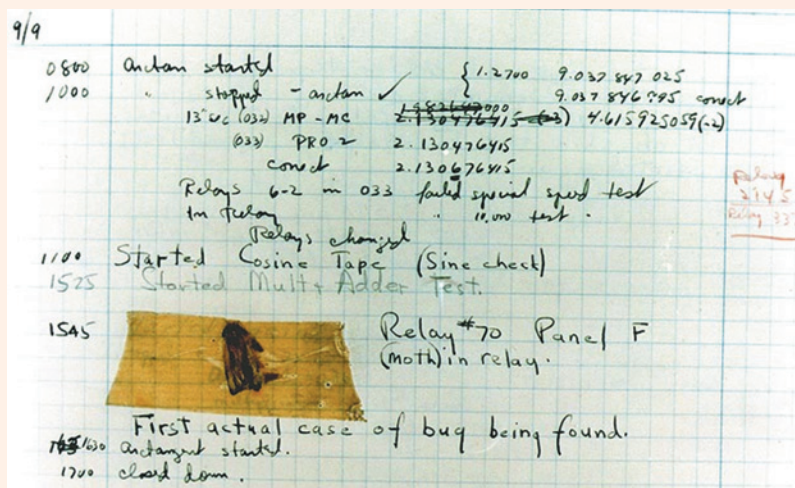 9/9
0800 arctan started { 1.2700 9.037 847 025
1000 " stopped - arctan ✓ 9.037 846 795 conect
13"uc (032) MP - MC 2.130476415 (-3) 4.615925059(-2)
(033) PRO 2 2.130476415
conect 2.130676415
Relays 6-2 in 033 failed special speed test
In Relay " 10,000 test .
Relays changed
Relay
2145
Relay 337
1100 Started Cosine Tape (Sine check)
1525 Started Mult + Adder Test.
1545 Relay #70 Panel F
(moth) in relay.
First actual case of bug being found.
1630 arctangent started.
1700 closed down.